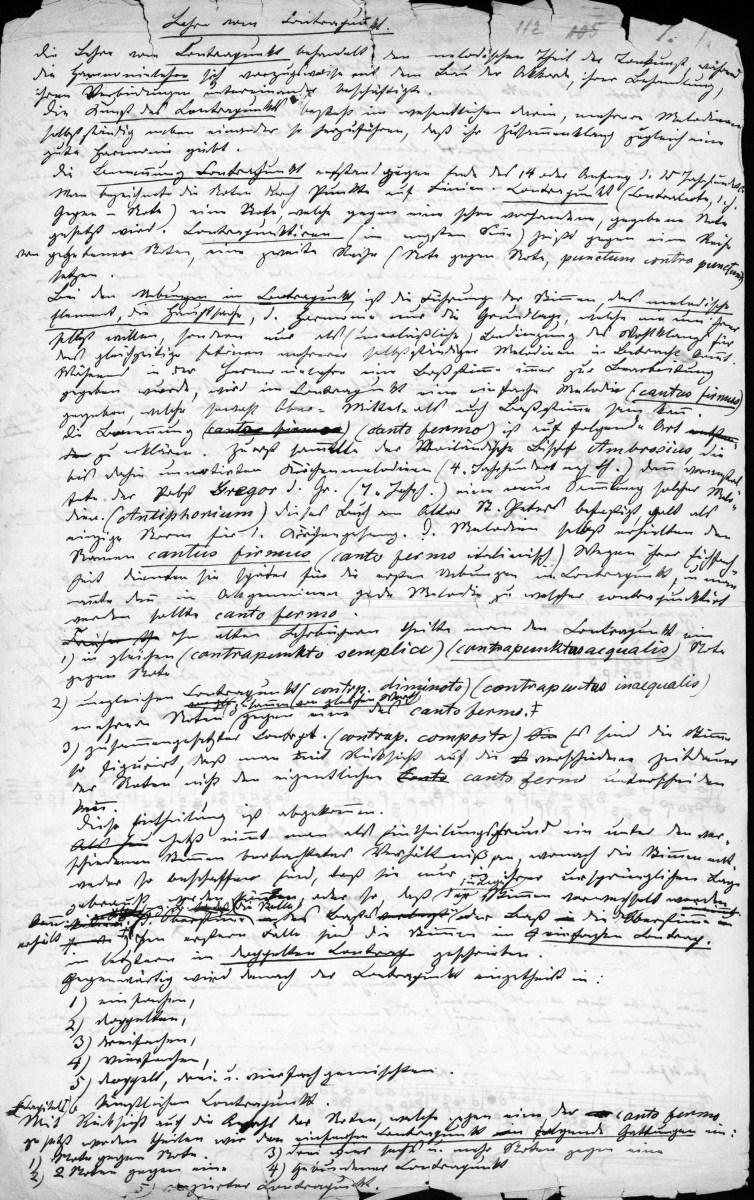 Lehre vom Contrapunkt.
112 105 1. 1.
Die Lehre vom Contrapunkt behandelt den melodischen Theil der Tonkunst, während
die Harmonielehre sich vorzugsweise mit dem Bau der Akkorde, ihrer Behandlung,
ihren Verbindungen untereinander beschäftigte.
Die Kunst des Contrapunkts besteht im wesentlichen darin, mehrere Melodieen
selbstständig neben einander so fortzuführen, daß ihr Zusammenklang zugleich eine
gute Harmonie giebt.
Die Benennung Contrapunkt entstand gegen Ende des 14 oder Anfang d. 15 Jahrhunderts.
Man bezeichnete die Noten durch Punkte auf Linien. Contrapunkt (Contranote, d. h.
Gegen-Note) eine Note, welche gegen eine schon vorhandene, gegebene Note
gesetzt wird. Contrapunktiren (im engsten Sinn) heißt gegen eine Reihe
von gegebenen Noten, eine zweite Reihe (Note gegen Note, punctum contra punctum)
setzen.
Bei den Uebungen im Contrapunkt ist die Führung der Stimmen, das melodische
Element, die Hauptsache, d. Harmonie nur die Grundlage, welche nie um ihrer
selbst willen, sondern nur als (unerläßliche) Bedingung des Wohlklangs für
das gleichzeitige Ertönen mehrerer selbstständiger Melodieen in Betracht kommt.
Während in der Harmonielehre eine Baßstimme immer zur Bearbeitung
gegeben wurde, wird im Contrapunkt eine einfache Melodie (cantus firmus)
gegeben, welche sowohl Ober- Mittel- als auch Baßstimme sein kann.
Die Benennung (canto fermo) ist auf folgende Art
zu erklären. Zuerst sammelte der Mailändische Bischof Ambrosius die
bis dahin unnotirten Kirchenmelodieen (4. Jahrhundert nach Ch.) dann veranstal-
tete der Pabst Gregor d. Gr. (7. Jahrh.) eine neue Sammlung solcher Melo-
dien. (Antiphonium) dieses Buch am Altar St. Peters befestigt galt als
einzige Norm für d. Kirchengesang. D. Melodien selbst erhielten den
Namen cantus firmus (canto fermo italienisch.) Wegen ihrer Einfach-
heit dienten sie später für die ersten Uebungen im Contrapunkt, u. man
nannte dann im Allgemeinen jede Melodie zu welcher contrapunktirt
werden sollte canto fermo.
In alten Lehrbüchern theilte man den Contrapunkt ein
1) in gleichen (contrapunkto semplice) (contrapunktus aequalis) Note
gegen Note
2) ungleichen Contrapunkt (contrap. diminoto) (contrapuntus inaequalis)
mehrere Noten gegen eine des canto fermo.
3) zusammengesetzter Contrapt. (contrap. composto) Es sind die Stimmen
so figurirt, daß man mit Rücksicht auf die verschiedene Zeitdauer
der Noten nicht den eigentlichen canto fermo unterscheiden
kann.
Diese Eintheilung ist abgekommen.
Jetzt nimmt man als Eintheilungsgrund ein unter den ver-
schiedenen Stimmen beobachtetes Verhältniß an, wonach die Stimmen ent-
weder so beschaffen sind, daß sie nur in ihrer ursprünglichen Lage
gebraucht werden können oder so, daß die Stimmen verwechselt werden
die Oberstimme des Basses oder Baß die Oberstimme
Im ersten Falle sind die Stimmen im einfachen Contrap.
im letztern in doppelten Contrap. geschrieben.
Gegenwärtig wird danach der Contrapunkt eingetheilt in:
1) einfachen,
2) doppelten,
3) dreifachen,
4) vierfachen,
5) doppelt, drei u. vierfach gemischten.
Capitel 1 Einfachen Contrapunkt.
Mit Rücksicht auf die Anzahl der Noten, welche gegen eine der canto fermo
gesetzt werden theilen wir den einfachen Contrapunkt in folgende Gattungen ein:
1) Note gegen Note. 3) Drei vier sechs u. mehr Noten gegen eine
2) 2 Noten gegen eine 4) Gebundener Contrapunkt
5) verzierter Contrapunkt.